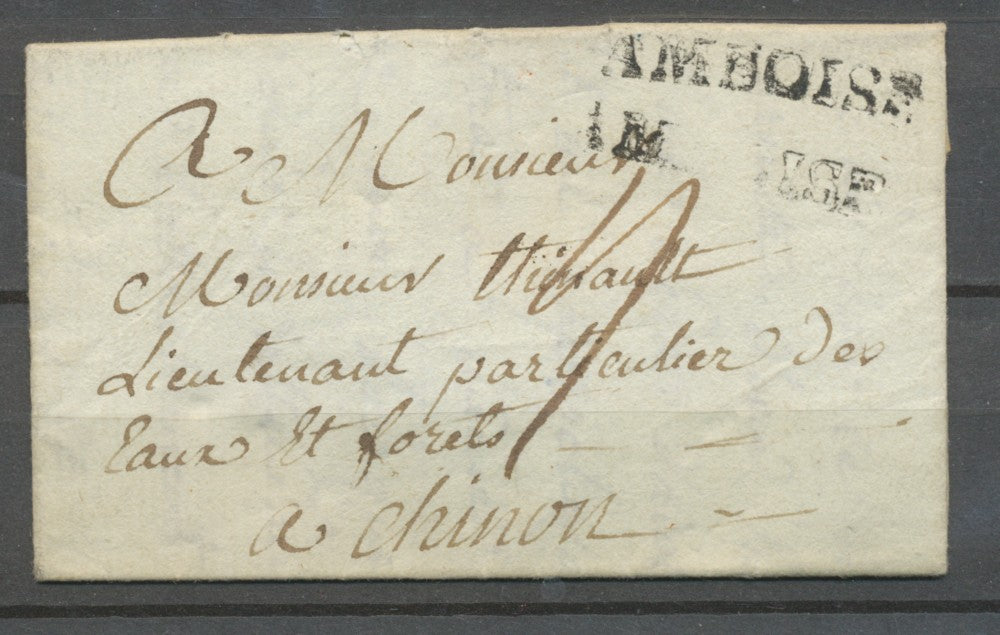 AMBOISE
AM ISE
A Monsieur
Monsieur
Lieutenant particulier des
Eaux Et forets
a chinon